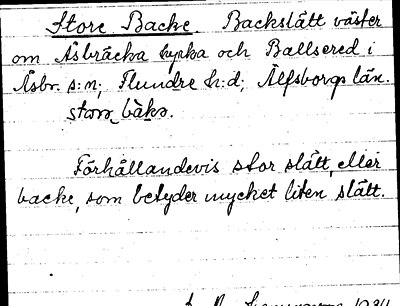 Store Backe. Backslätt väster
om Åsbräcka kyrka och Ballsered i
Åsbr. s:n, Flundre h:d, Älfsborgs län.
stora bàka.
Förhållandevis stor slätt, eller
backe, som betyder mycket liten slätt.